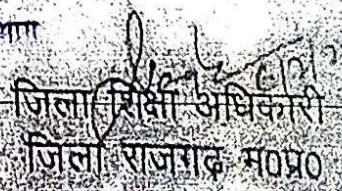 जिला शिक्षा अधिकारी
जिला राजगढ़ म0प्र0